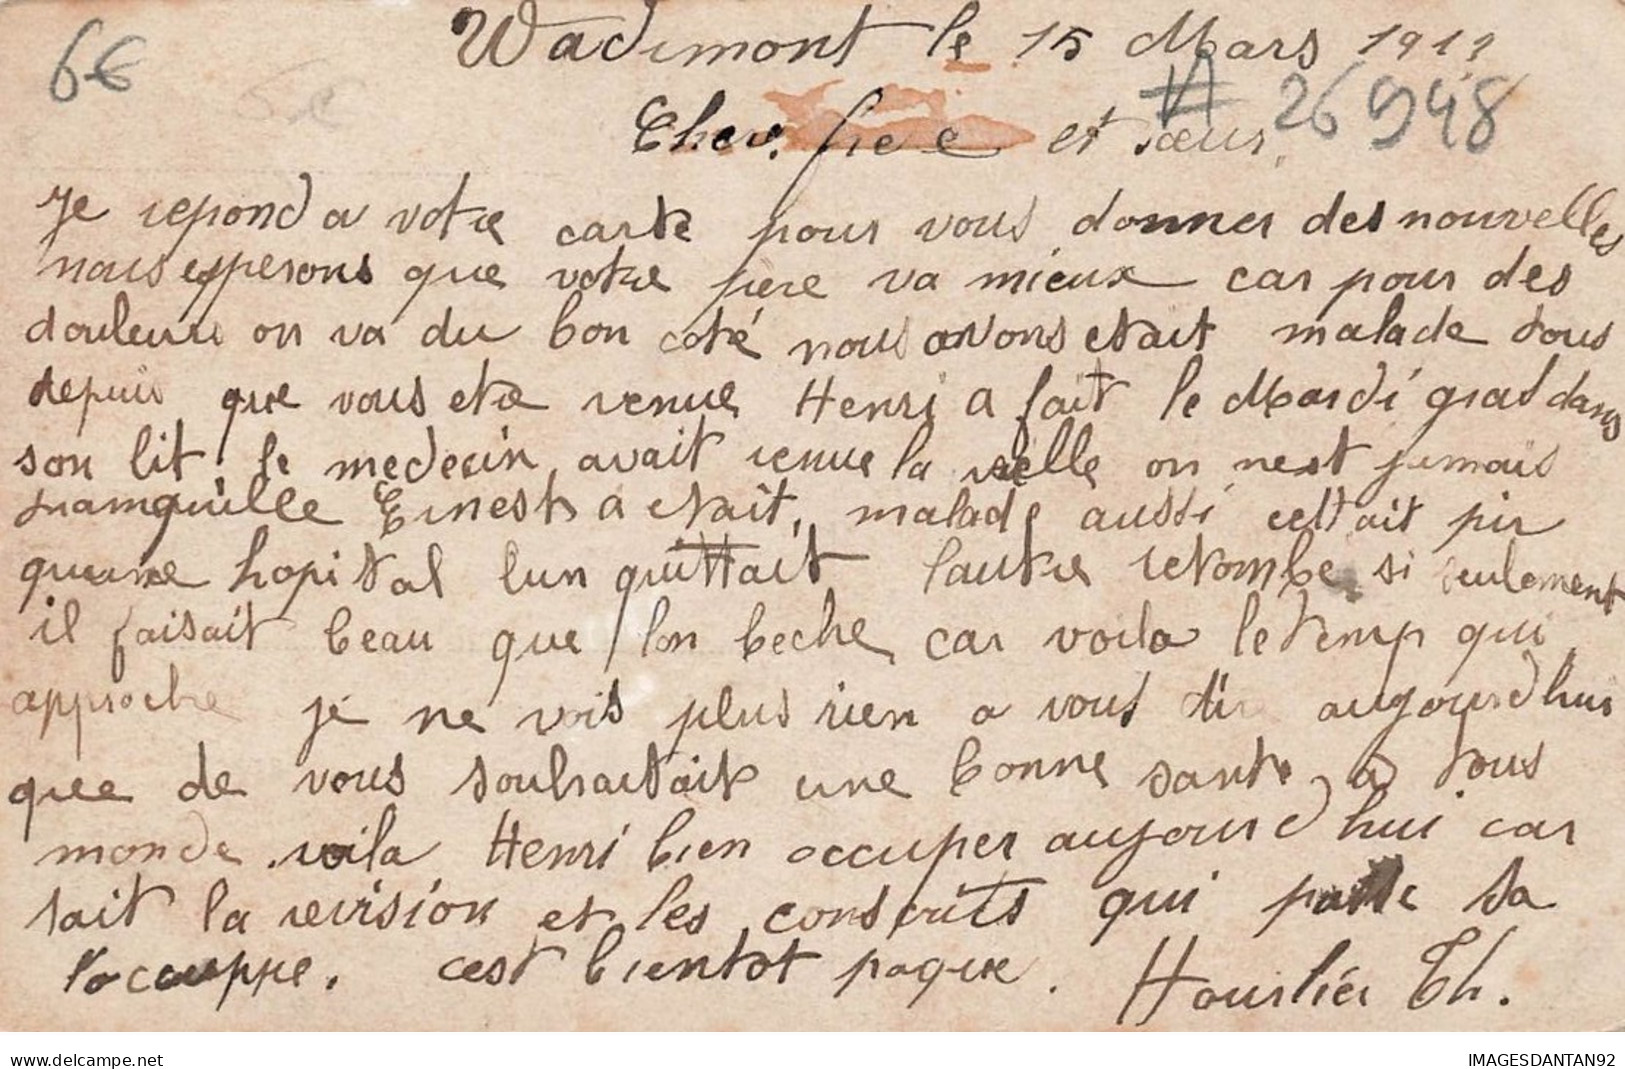 6€
Wadimont le 15 Mars 191
N 26948
Cher frere et sœur.
Je repond a votre carte pour vous donner des nouvelles
nous esperons que votre pere va mieux car pour des
douleurs on va du bon coté nous avons etait malade tous
depuis que vous etre venue Henri a fait le Mardi gras dans
son lit le medecin avait venue la veille on nest jamais
tramquille Ernest a etait malade aussi cettait pir
quune hopital lun quittait lautre retombe si seulement
il faisait beau que lon beche car voila le temp qui
approche je ne vois plus rien a vous dir aujourdhui
que de vous souhaitait une bonne sante a tous
monde voila Henri bien occuper aujourdhui car
sait la revision et les conscrits qui passe sa
loccuppe. cest bientot paque. Hourlier Th.
www.delcampe.net
IMAGESDANTAN92